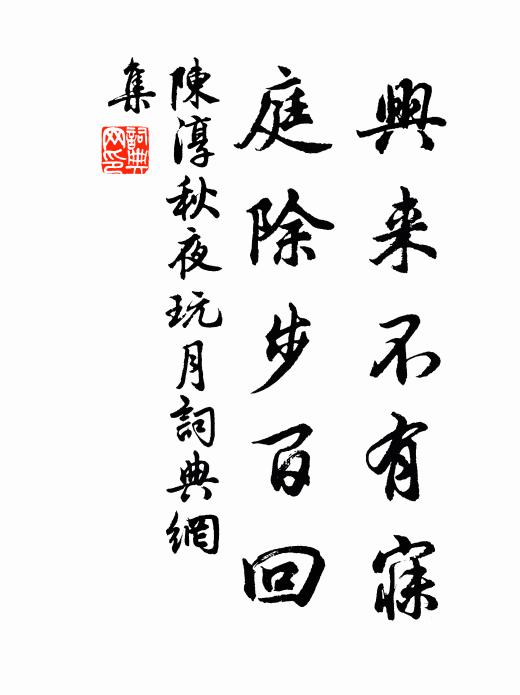 興来不有寐
庭除步百回
陳淳秋夜玩月詞典網
集
詞典
网印